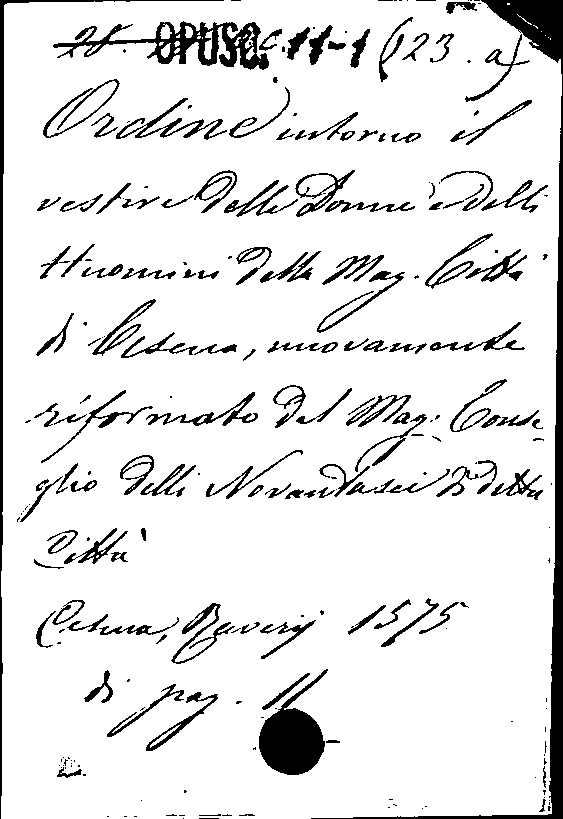 28. OPUSC. 11-1 (23.a)
Ordine intorno il
vestire delle Donne e delli
Huomini della Mag. Città
di Cesena, nuovamente
riformato dal Mag. Conse-
glio delli Novantasei di detta
Città
Cesena, Raverij 1575
di pag. 11